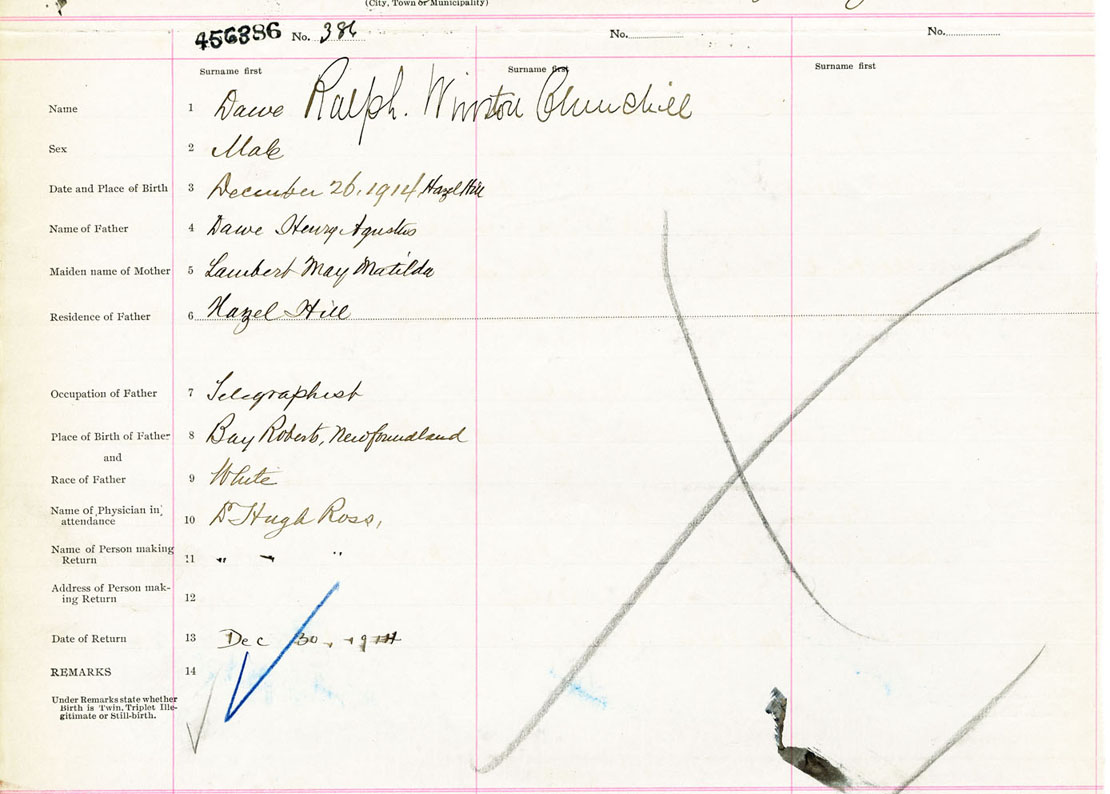 (City, Town or Municipality)
456386 No. 386 No. No.
Surname first Surname first Surname first
Name 1 Dawe Ralph. Winston Churchill
Sex 2 Male
Date and Place of Birth 3 December 26, 1914, Hazel Hill
Name of Father 4 Dawe Henry Agustus
Maiden name of Mother 5 Lambert May Matilda
Residence of Father 6 Hazel Hill
Occupation of Father 7 Telegraphist
Place of Birth of Father 8 Bay Roberts, Newfoundland
and
Race of Father 9 White
Name of Physician in
attendance 10 Dr Hugh Ross,
Name of Person making
Return 11 " " "
Address of Person mak-
ing Return 12
Date of Return 13 Dec 30, 19
REMARKS 14
Under Remarks state whether
Birth is Twin, Triplet Ille-
gitimate or Still-birth.